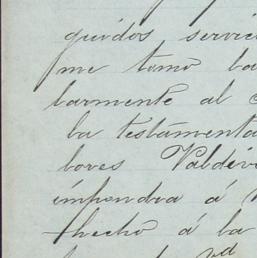 guidos servici
me tomo la
larmente al
la testamenta
lores Valdiv
impondra á
hecho á la